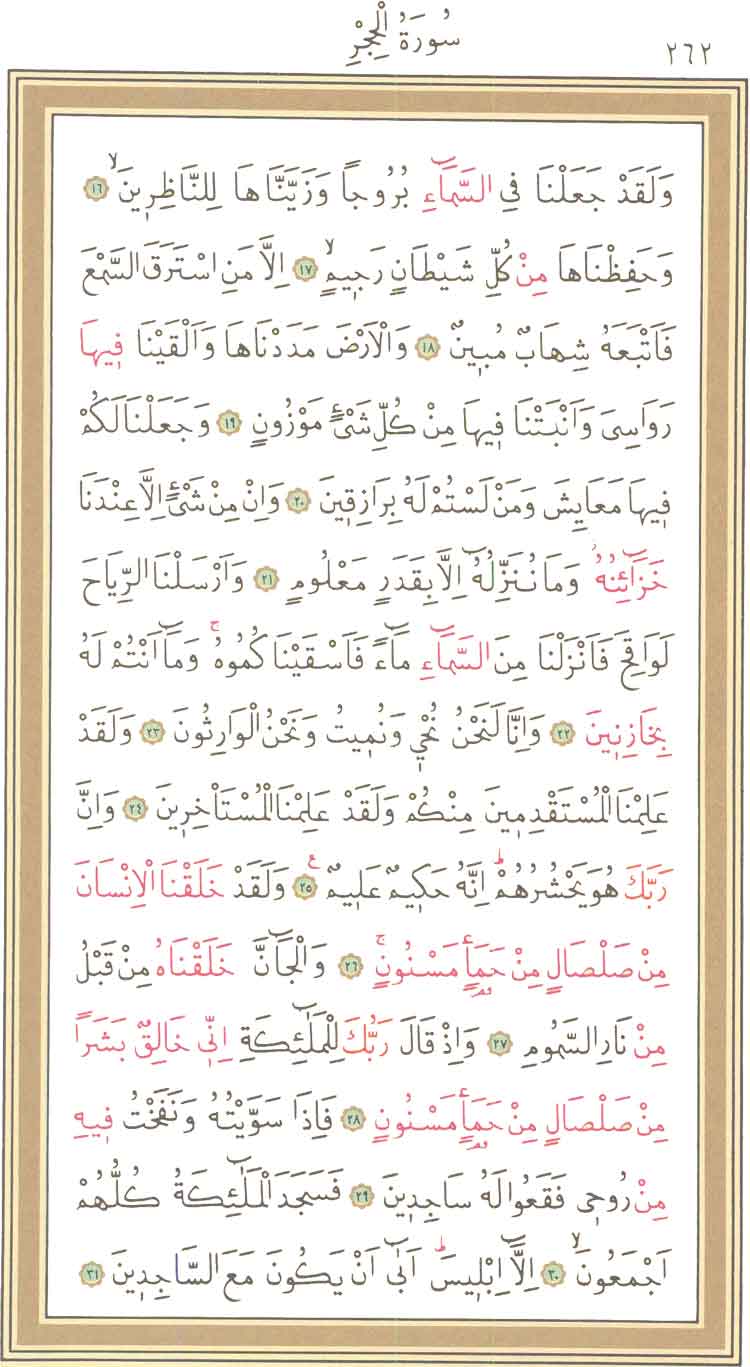 ٢٦٢
سُورَةُ الْحِجْرِ
وَلَقَدْ جَعَلْنَا فِى السَّمَٓاءِ بُرُوجاً وَزَيَّنَّاهَا لِلنَّاظِر۪ينَۙ ١٦
وَحَفِظْنَاهَا مِنْ كُلِّ شَيْطَانٍ رَج۪يمٍۙ ١٧ اِلَّا مَنِ اسْتَرَقَ السَّمْعَ
فَاَتْبَعَهُ شِهَابٌ مُب۪ينٌ ١٨ وَالْاَرْضَ مَدَدْنَاهَا وَاَلْقَيْنَا ف۪يهَا
رَوَاسِىَ وَاَنْبَتْنَا ف۪يهَا مِنْ كُلِّ شَىْءٍ مَوْزُونٍ ١٩ وَجَعَلْنَا لَكُمْ
ف۪يهَا مَعَايِشَ وَمَنْ لَسْتُمْ لَهُ بِرَازِق۪ينَ ٢٠ وَاِنْ مِنْ شَىْءٍ اِلَّا عِنْدَنَا
خَزَٓائِنُهُۘ وَمَا نُنَزِّلُهُٓ اِلَّا بِقَدَرٍ مَعْلُومٍ ٢١ وَاَرْسَلْنَا الرِّيَاحَ
لَوَاقِحَ فَاَنْزَلْنَا مِنَ السَّمَٓاءِ مَٓاءً فَاَسْقَيْنَا كُمُوهُۚ وَمَٓا اَنْتُمْ لَهُ
بِخَازِن۪ينَ ٢٢ وَاِنَّا لَنَحْنُ نُحْي۪ وَنُم۪يتُ وَنَحْنُ الْوَارِثُونَ ٢٣ وَلَقَدْ
عَلِمْنَا الْمُسْتَقْدِم۪ينَ مِنْكُمْ وَلَقَدْ عَلِمْنَا الْمُسْتَاْخِر۪ينَ ٢٤ وَاِنَّ
رَبَّكَ هُوَ يَحْشُرُهُمْۜ اِنَّهُ حَك۪يمٌ عَل۪يمٌ۟ ٢٥ وَلَقَدْ خَلَقْنَا الْاِنْسَانَ
مِنْ صَلْصَالٍ مِنْ حَمَأٍ مَسْنُونٍۚ ٢٦ وَالْجَٓانَّ خَلَقْنَاهُ مِنْ قَبْلُ
مِنْ نَارِ السَّمُومِ ٢٧ وَاِذْ قَالَ رَبُّكَ لِلْمَلٰٓئِكَةِ اِنّ۪ى خَالِقٌ بَشَراً
مِنْ صَلْصَالٍ مِنْ حَمَأٍ مَسْنُونٍ ٢٨ فَاِذَا سَوَّيْتُهُ وَنَفَخْتُ ف۪يهِ
مِنْ رُوح۪ى فَقَعُوا لَهُ سَاجِد۪ينَ ٢٩ فَسَجَدَ الْمَلٰٓئِكَةُ كُلُّهُمْ
اَجْمَعُونَۙ ٣٠ اِلَّٓا اِبْل۪يسَۜ اَبٰٓى اَنْ يَكُونَ مَعَ السَّاجِد۪ينَ ٣١